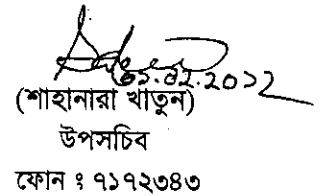 ০১.০২.২০১২
(শাহানারা খাতুন)
উপসচিব
ফোন ঃ ৭১৭২৩৪৩